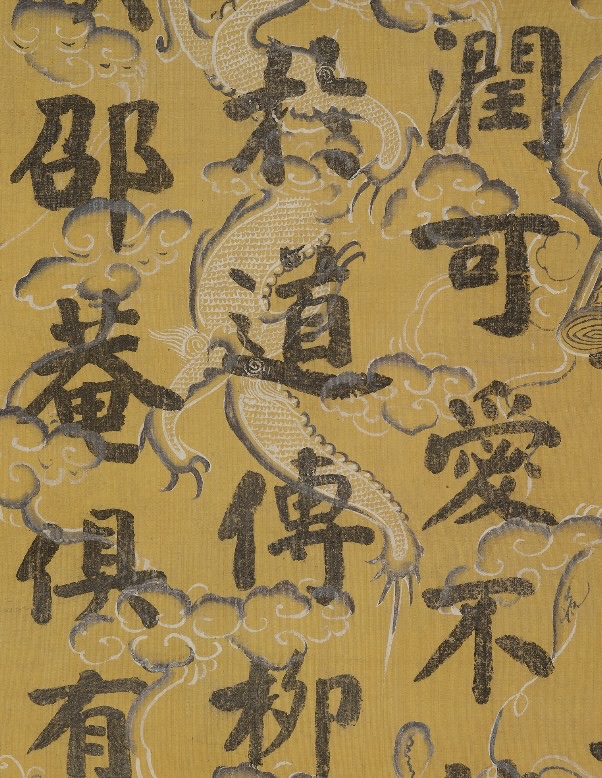 潤可愛不
於道傳柳
邵菴俱有